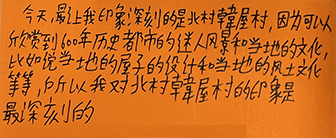 今天,最让我印象深刻的是北村韓屋村,因为可以
欣赏到600年历史都市的迷人风景和当地的文化,
比如说当地的屋子的设计和当地的风土文化
等等,所以我对北村韓屋村的印象是
最深刻的